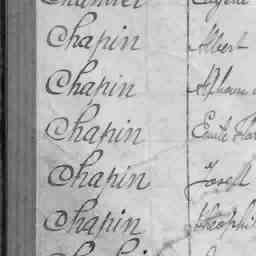 Chapin Albert
Chapin Alphonse
Chapin Emile
Chapin Joseph
Chapin